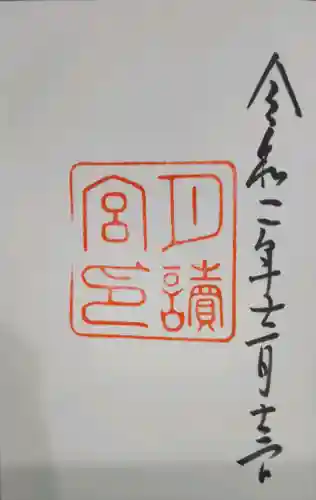 令和二年十二月十三日
月讀
宮印